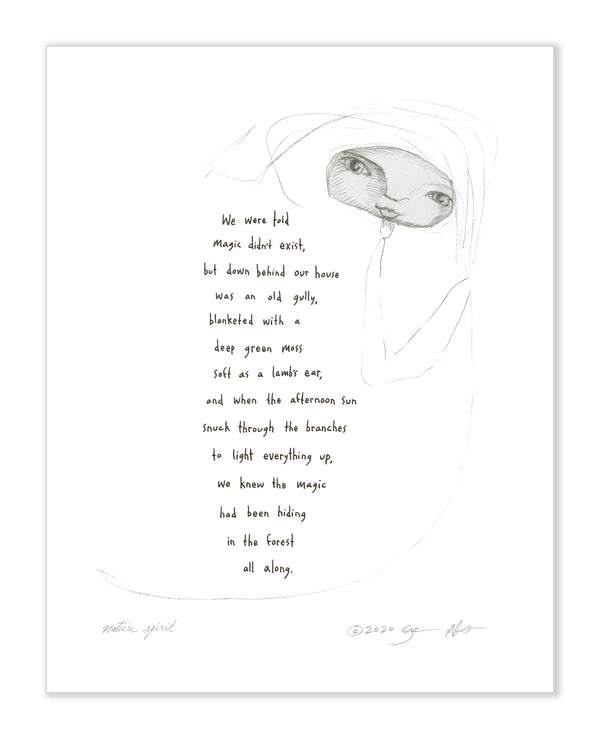 We were told
magic didn't exist,
but down behind our house
was an old gully,
blanketed with a
deep green moss
soft as a lamb's ear,
and when the afternoon sun
snuck through the branches
to light everything up,
we knew the magic
had been hiding
in the forest
all along.
nature spirit
©2020